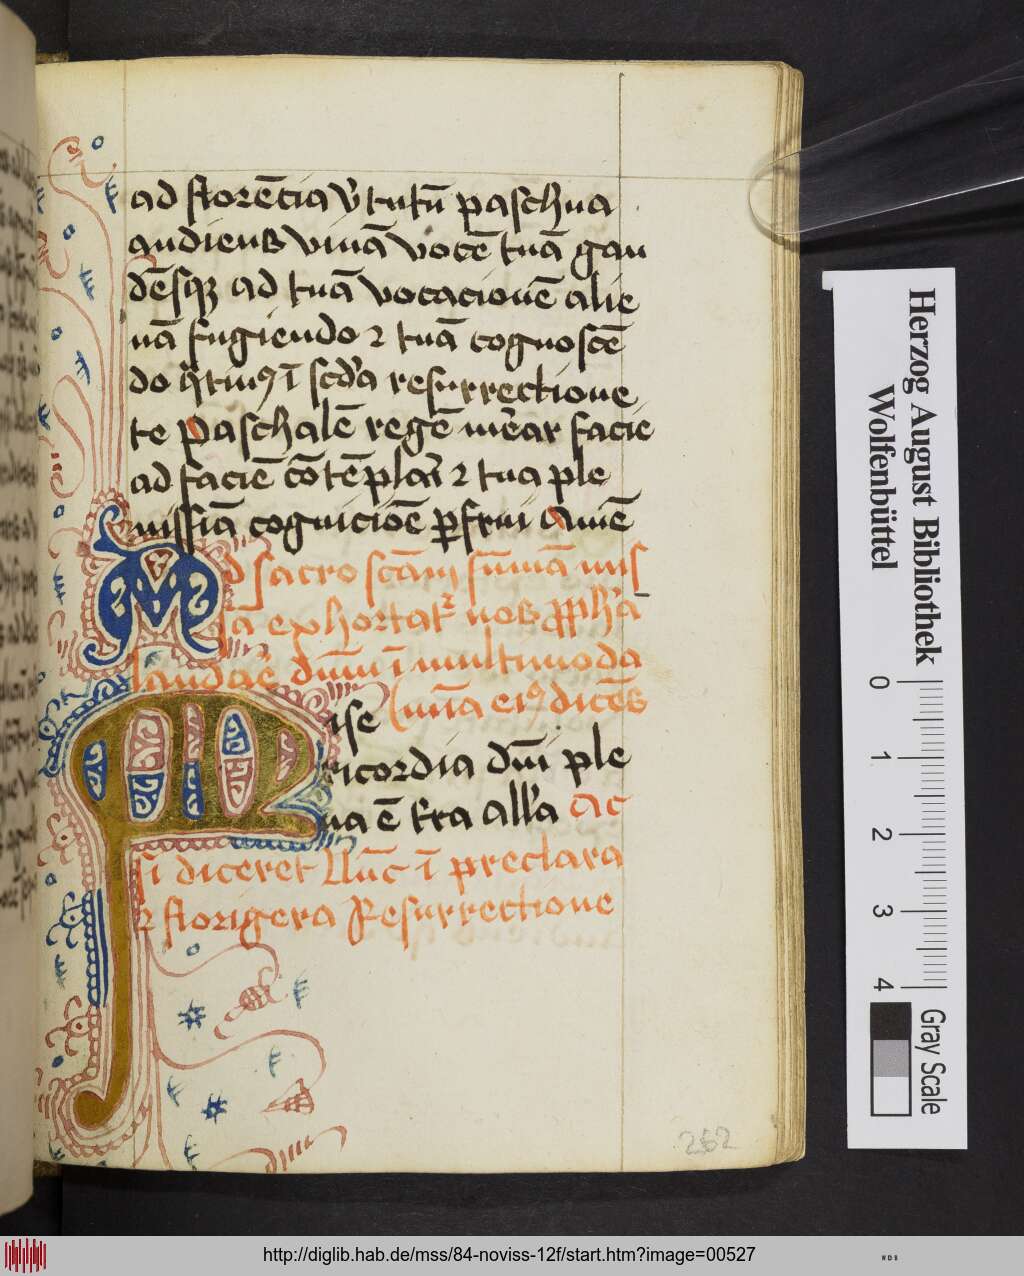 ad florēcia v̉tutū paschua
audiens vivā vocē tuā gau
dēsqꝫ ad tuā vocacionē alie
nā fugiendo ⁊ tuā cognoscē
do q̇tinꝰ ī scd̓a resurrectione
te paschalē regē mer̉ar facie
ad faciē cōtēplar̉ ⁊ tua ple
nissīa cogniciōe ꝑfrui amē
Ad sacro scām sūmā mis
sā exhortatꝛ nos ꝓph̓a
laudar̉ dm̄ ī multimoda
(mīa eiꝰ dicēs
Mise
ricordia dn̄i ple
na ē tr̉a all̉a ac
si diceret Nūc ī preclara
⁊ florigera Resurrectione
262
Herzog August Bibliothek
Wolfenbüttel
0 1 2 3 4
Gray Scale
http://diglib.hab.de/mss/84-noviss-12f/start.htm?image=00527